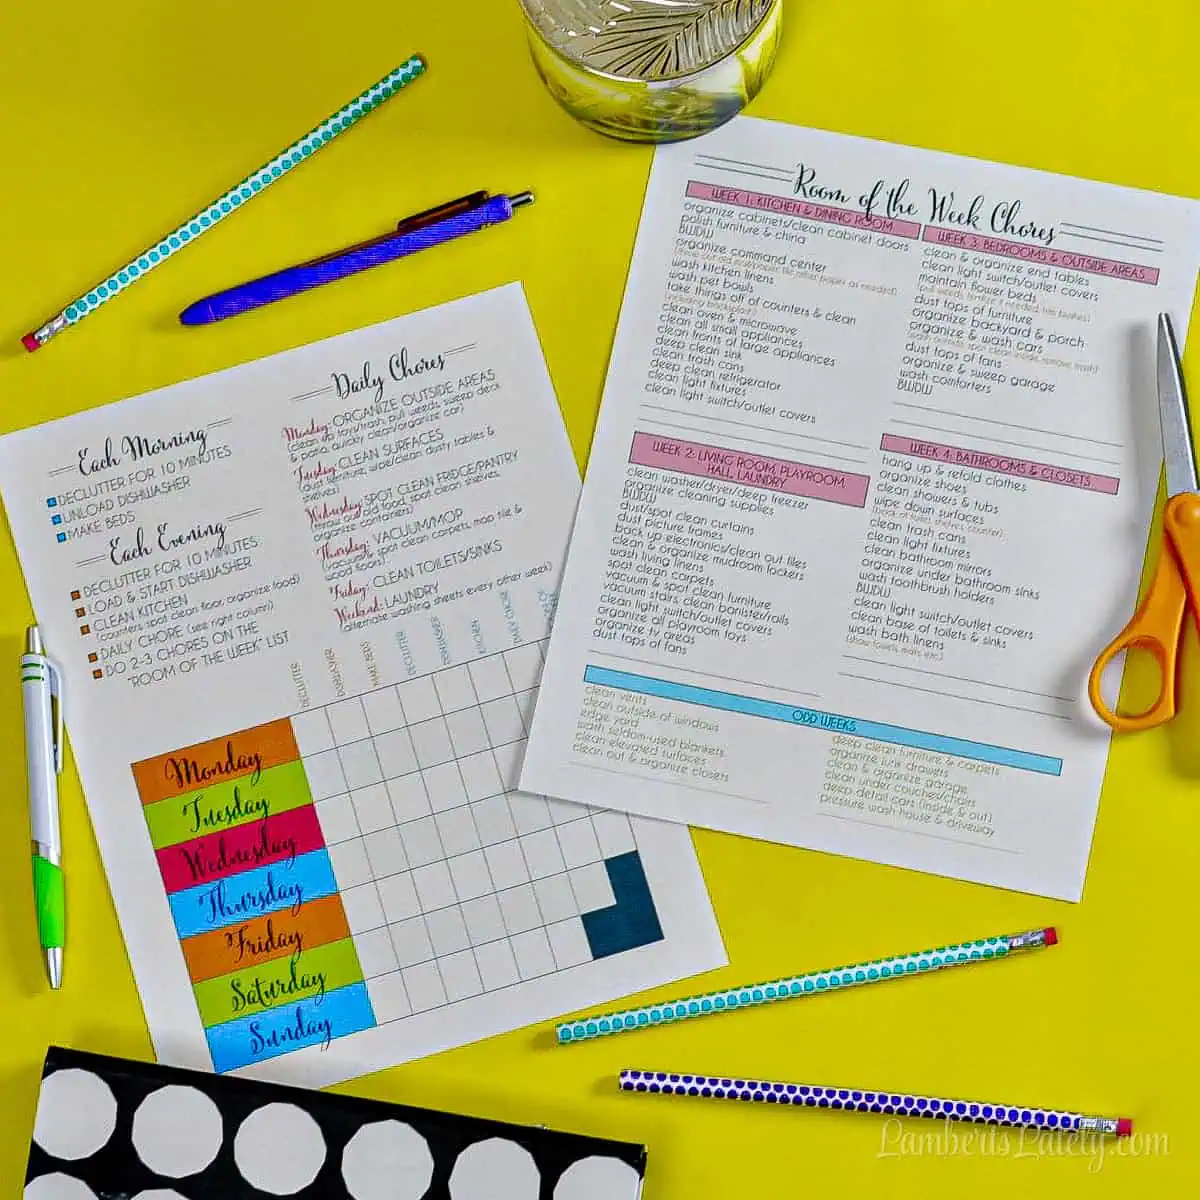 Each Morning
DECLUTTER FOR 10 MINUTES
UNLOAD DISHWASHER
MAKE BEDS
Each Evening
DECLUTTER FOR 10 MINUTES
LOAD & START DISHWASHER
CLEAN KITCHEN
(counters spot clean floor, organize food)
DAILY CHORE (see right column)
DO 2-3 CHORES ON THE
"ROOM OF THE WEEK" LIST
Daily Chores
Monday: ORGANIZE OUTSIDE AREAS
(clean up toys/trash, pull weeds, sweep deck
& patio, quickly clean/organize car)
Tuesday: CLEAN SURFACES
(dust furniture, wipe/clean dusty tables &
shelves)
Wednesday: SPOT CLEAN FRIDGE/PANTRY
(throw out old food, spot clean shelves,
organize containers)
Thursday: VACUUM/MOP
(vacuum & spot clean carpets, mop tile &
wood floors)
Friday: CLEAN TOILETS/SINKS
Weekend: LAUNDRY
(alternate washing sheets every other week)
DECLUTTER
DISHWASHER
MAKE BEDS
DECLUTTER
DISHWASHER
KITCHEN
DAILY CHORE
Monday
Tuesday
Wednesday
Thursday
Friday
Saturday
Sunday
Room of the Week Chores
WEEK 1: KITCHEN & DINING ROOM
organize cabinets/clean cabinet doors
polish furniture & china
BWDW
organize command center
wash kitchen linens
wash pet bowls
take things off of counters & clean
(including backsplash)
clean oven & microwave
clean all small appliances
clean fronts of large appliances
deep clean sink
clean trash cans
deep clean refrigerator
clean light fixtures
clean light switch/outlet covers
WEEK 2: LIVING ROOM, PLAYROOM,
HALL, LAUNDRY
clean washer/dryer/deep freezer
organize cleaning supplies
BWDW
dust/spot clean curtains
dust picture frames
back up electronics/clean out files
clean & organize mudroom lockers
wash living linens
spot clean carpets
vacuum & spot clean furniture
vacuum stairs, clean banister/rails
clean light switch/outlet covers
organize all playroom toys
organize tv areas
dust tops of fans
WEEK 3: BEDROOMS & OUTSIDE AREAS
clean & organize end tables
clean light switch/outlet covers
maintain flower beds
(pull weeds, fertilize if needed, trim bushes)
dust tops of furniture
organize backyard & porch
organize & wash cars
dust tops of fans
organize & sweep garage
wash comforters
BWDW
WEEK 4: BATHROOMS & CLOSETS
hang up & refold clothes
organize shoes
clean showers & tubs
wipe down surfaces
(back of toilet, shelves, counter)
clean trash cans
clean light fixtures
clean bathroom mirrors
organize under bathroom sinks
wash toothbrush holders
BWDW
clean light switch/outlet covers
clean base of toilets & sinks
wash bath linens
(show towels, mats, etc.)
ODD WEEKS
clean vents
clean outside of windows
edge yard
wash seldom-used blankets
clean elevated surfaces
clean out & organize closets
deep clean furniture & carpets
organize junk drawers
clean & organize garage
clean under couches/chairs
deep detail cars (inside & out)
pressure wash house & driveway
LambertsLately.com